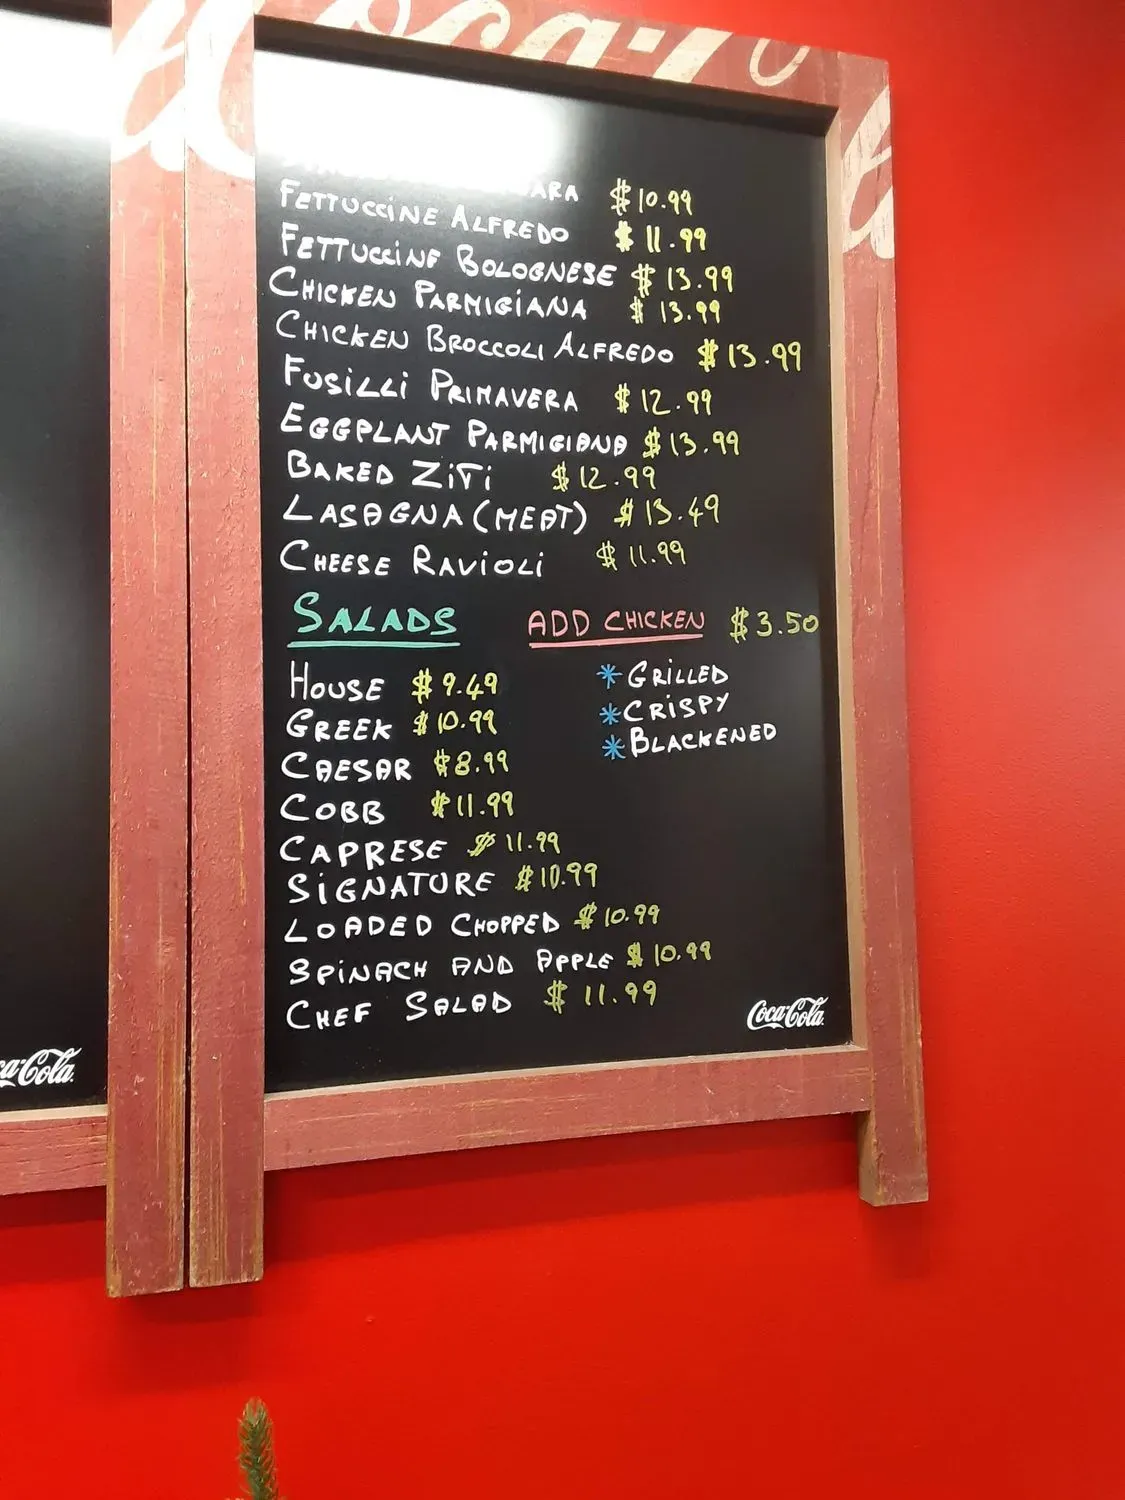 Coca-Co
$10.99
FETTUCCINE ALFREDO $11.99
FETTUCCINE BOLOGNESE $13.99
CHICKEN PARMIGIANA $13.99
CHICKEN BROCCOLI ALFREDO $13.99
FUSILLI PRIMAVERA $12.99
EGGPLANT PARMIGIANA $13.99
BAKED ZITI $12.99
LASAGNA (MEAT) $13.49
CHEESE RAVIOLI $11.99
SALADS ADD CHICKEN $3.50
HOUSE $9.49 * GRILLED
GREEK $10.99 * CRISPY
CAESAR $8.99 * BLACKENED
COBB $11.99
CAPRESE $11.99
SIGNATURE $10.99
LOADED CHOPPED $10.99
SPINACH AND APPLE $10.99
CHEF SALAD $11.99
Coca-Cola
ca-Cola